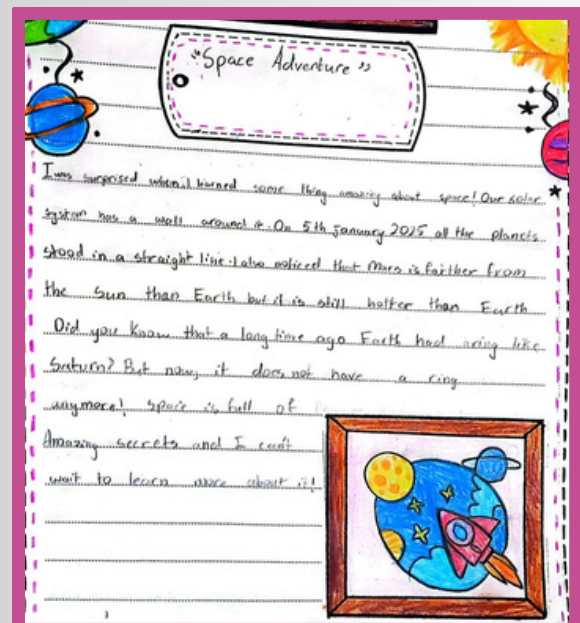 "Space Adventure"
I was surprised when I learned some thing amazing about space! Our solar
system has a wall around it. On 5th January 2025 all the planets
stood in a straight line. I also noticed that Mars is farther from
the Sun than Earth but it is still hotter than Earth
Did you know that a long time ago Earth had a ring like
Saturn? But now, it does not have a ring
anymore! Space is full of
Amazing secrets and I can't
wait to learn more about it!